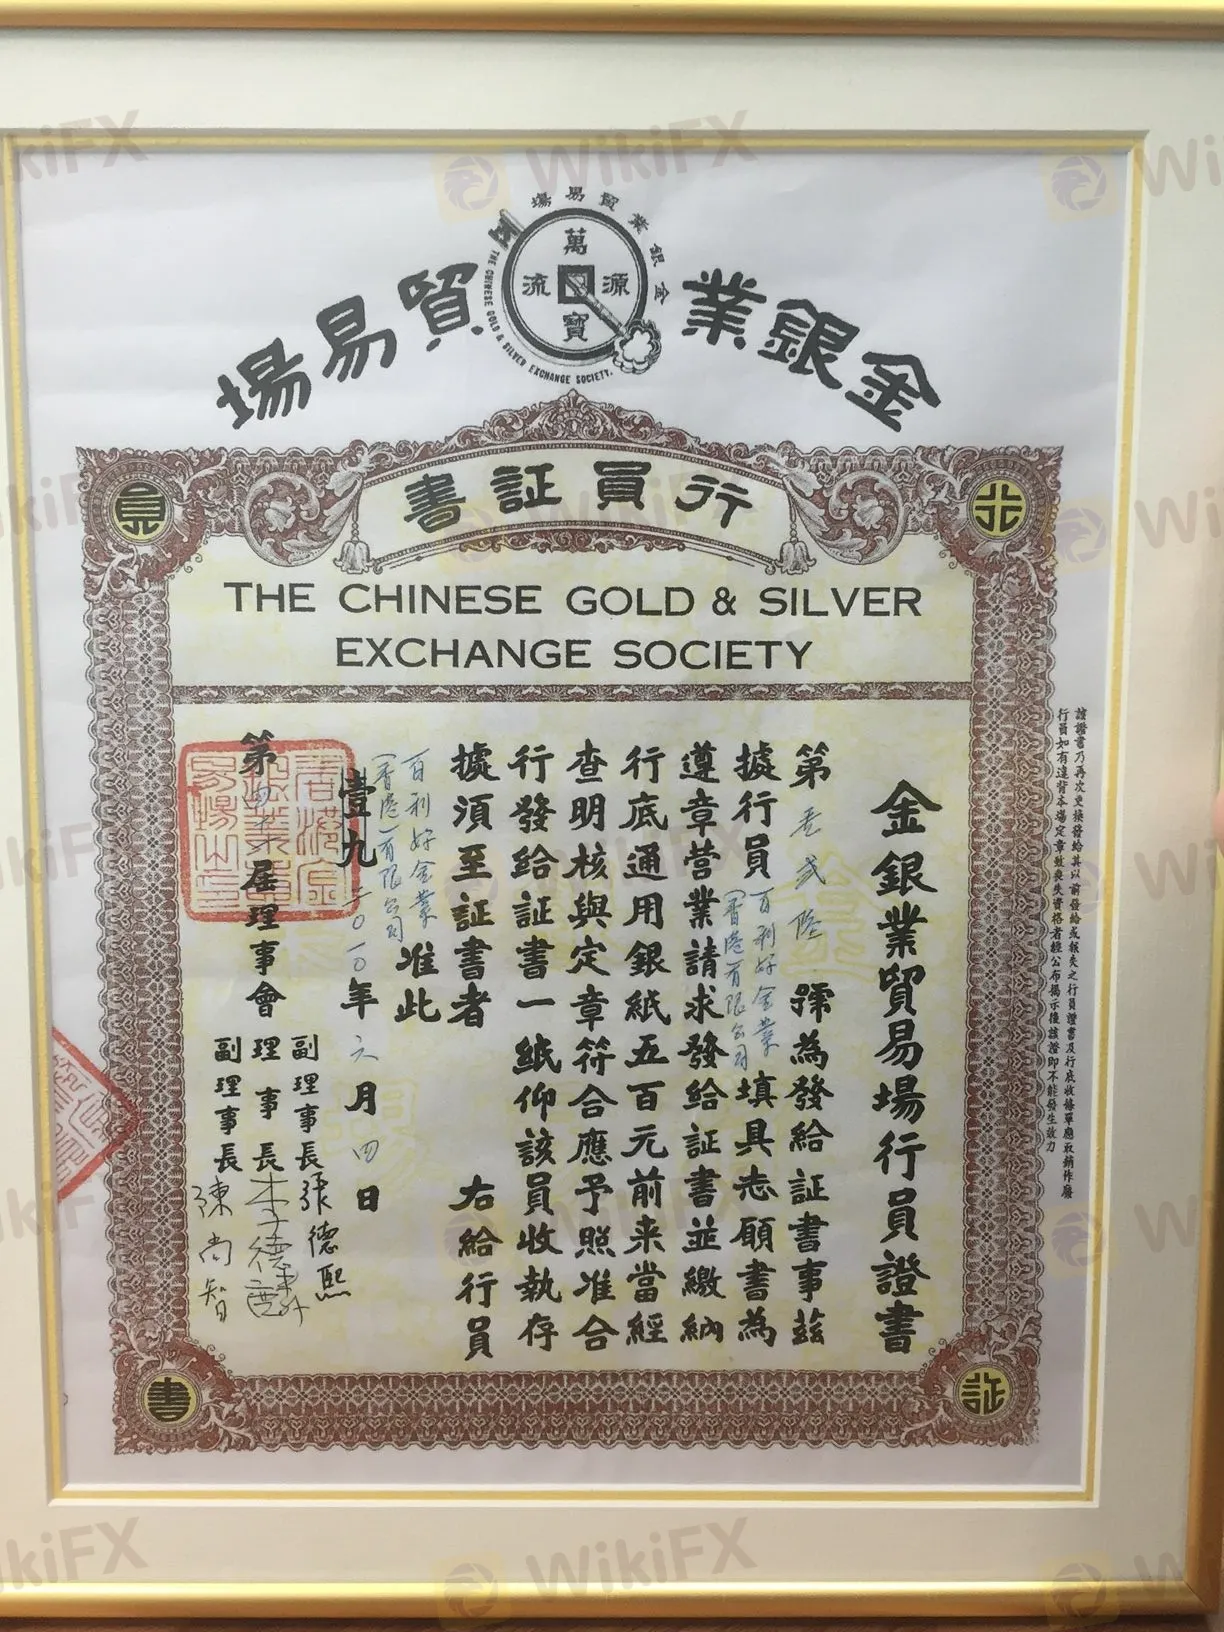 金銀業貿易場
金銀業貿易場
THE CHINESE GOLD & SILVER EXCHANGE SOCIETY.
萬
源
流
寶
行員証書
行
員
証
書
THE CHINESE GOLD & SILVER
EXCHANGE SOCIETY
該證書乃再次更換發給其以前發給或報失之行員證書及行底收條單應取銷作廢
行員如有違背本場定章致喪失資格者經公布揭示後該證即不能發生效力
金銀業貿易場行員證書
第壱弍陸號為發給証書事茲
據行員百利好金業(香港)有限公司填具志願書為
遵章營業請求發給証書並繳納
行底通用銀紙五百元前来當經
查明核與定章符合應予照准合
行發給証書一紙仰該員收執存
據須至証書者 右給行員
百利好金業(香港)有限公司 准此
壹九二〇一〇年六月四日
副理事長 張德熙
第 屆理事會 理事長
副理事長 陳尚智
WikiFX